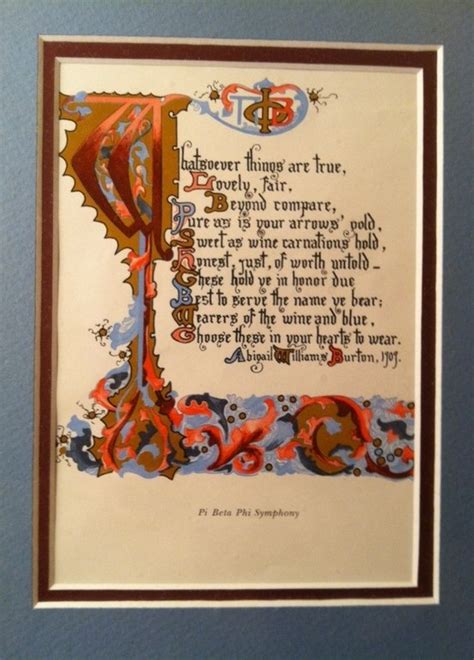 ΠΦΒ
Whatsoever things are true,
Lovely, fair,
Beyond compare,
Pure as is your arrows' gold,
Sweet as wine carnations hold,
Honest, just, of worth untold—
These hold ye in honor due
Best to serve the name ye bear;
Wearers of the wine and blue,
Choose these in your hearts to wear.
Abigail Williams Burton, 1909.
Pi Beta Phi Symphony